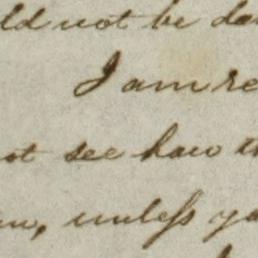 ld not be da
I am re
ot see how th
en, unless yo